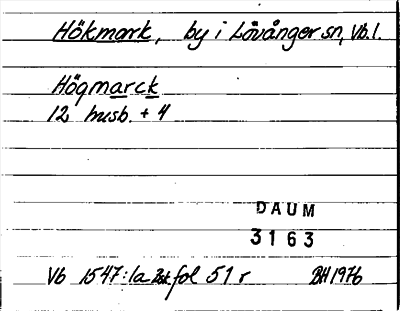 Hökmark, by i Lövånger sn, Vb. l.
Högmarck
12 husb. + 4
DAUM
3163
Vb 1547:1a fol 51 r BH 1976